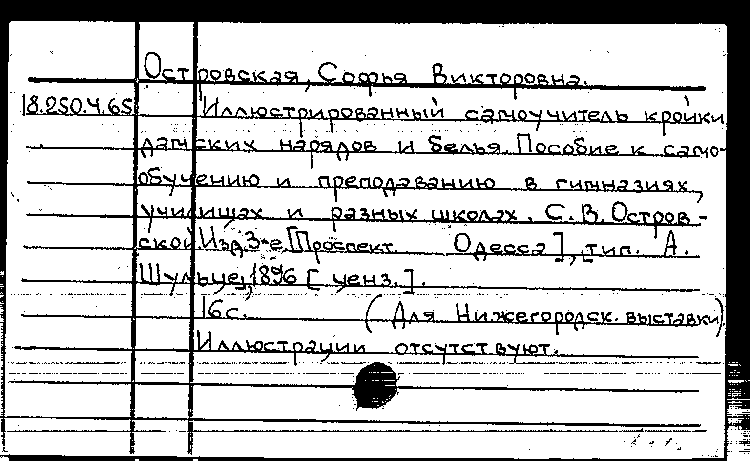 Островская, Софья Викторовна.
18.250.4.65 Иллюстрированный самоучитель кройки
дамских нарядов и белья. Пособие к само-
обучению и преподаванию в гимназиях,
училищах и разных школах. С. В. Остров-
ской Изд. 3-е [Проспект Одесса], [тип. А.
Шульце], 1896 [ценз.].
16 с. (Для Нижегородск. выставки)
Иллюстрации отсутствуют.